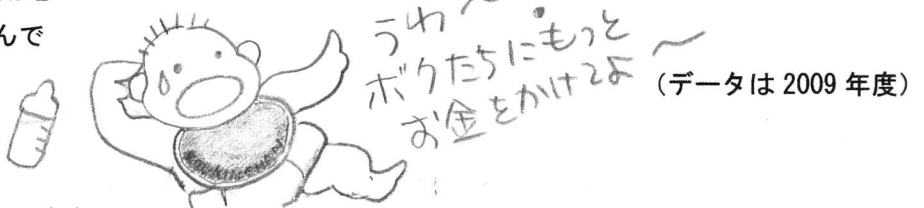 んで
うわ〜
ボクたちにもっと
お金をかけてよ〜
(データは 2009 年度)